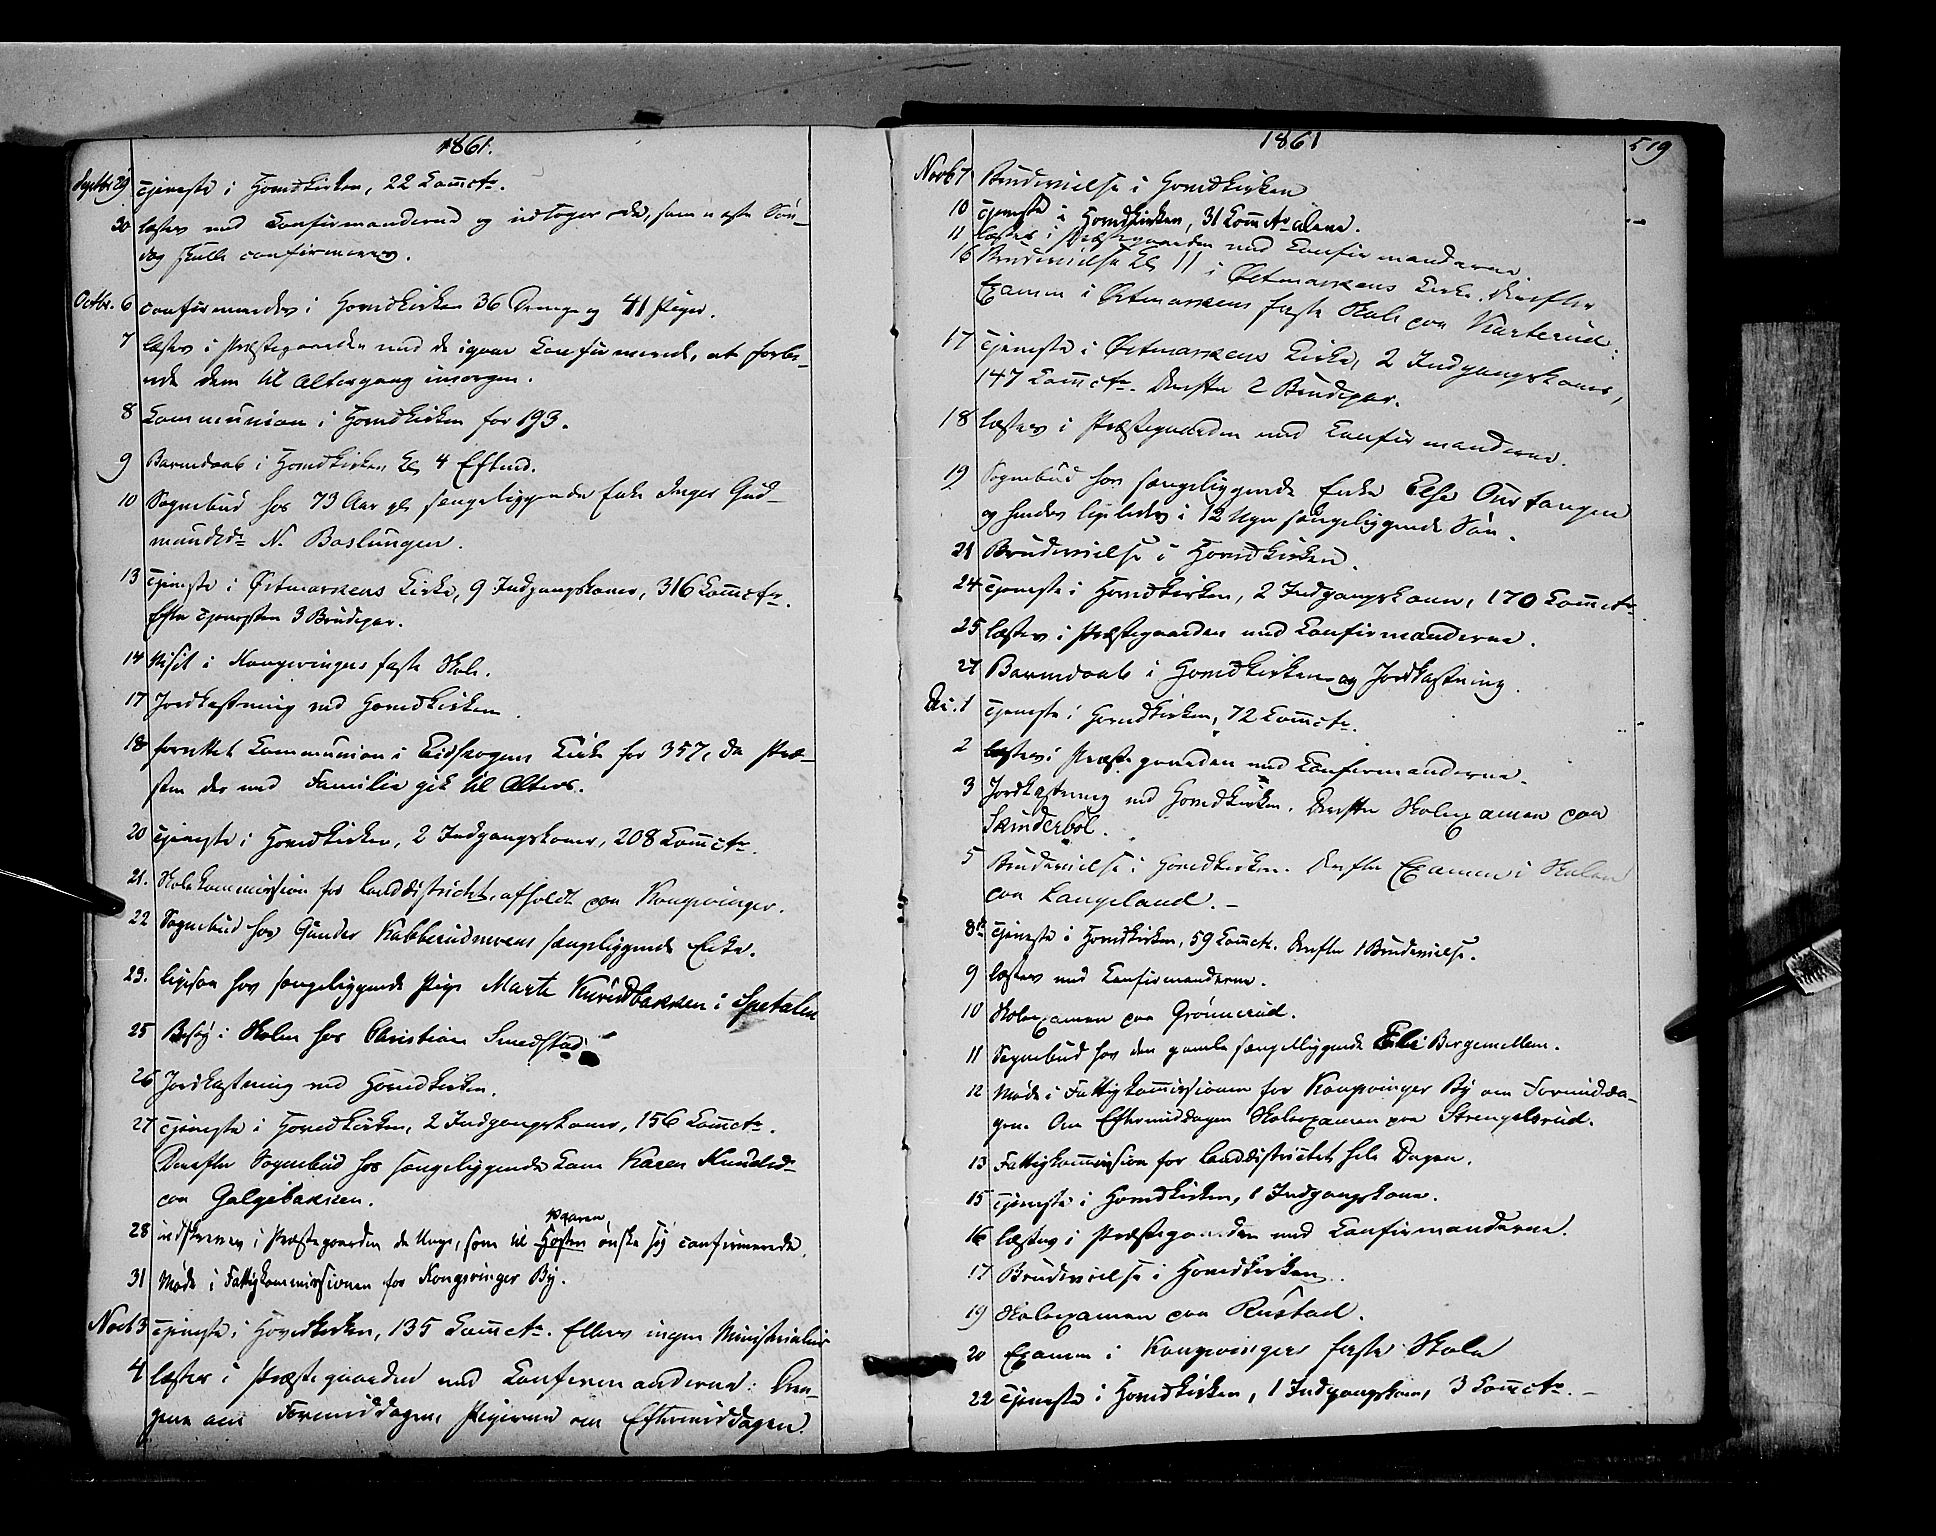 1861.
Septbr 29 Tjeneste i Hovedkirken, 22 Commctr.
30 læstes med Confirmanderne og udtoges de, som næste Søn-
dag skulle confirmeres.
Octbr. 6 confirmerdes i Hovedkirken 36 Drenge og 41 Piger.
7 læstes i Præstegaarden med de igaar Confirmerede, at forbe-
rede dem til Altergang imorgen.
8 Communion i Hovedkirken for 193.
9 Barnedaab i Hovedkirken Kl. 4 Efterm.
10 Sognebud hos 73 Aar gl. sengeliggende Enke Inger Gud-
mundsdr N. Baslungen.
13 Tjeneste i Østmarkens Kirke, 9 Indgangskoner, 316 Commctr.
Efter Tjenesten 3 Brudepar.
14 Visit i Kongsvingers faste Skole.
17 Jordkastning ved Hovedkirken.
18 forrettet Communion i Eidskogens Kirke for 357, da Præ-
sten der med Familie gik til Alters.
20 Tjeneste i Hovedkirken, 2 Indgangskoner, 208 Commctr.
21. Skolekommission for Landdistrictet, afholdt paa Kongsvinger.
22 Sognebud hos Gunder Kabberudmoens sengeliggende Enke.
23. ligesaa hos sengeliggende Pige Marte Kurudbakken i Spetalen
25 Besøg i Skolen hos Christian Smedstad
26 Jordkastning ved Hovedkirken.
27 Tjeneste i Hovedkirken, 2 Indgangskoner, 156 Commctr.
Derefter Sognebud hos sengeliggende Kone Karen Knudsdr
paa Galgebakken.
28 indskreves i Præstegaarden de Unge, som til Høsten Vaaren ønske sig confirmerede.
31 Møde i Fattigkommissionen for Kongsvinger By.
Novb 3 Tjeneste i Hovedkirken, 135 Commctr. Ellers ingen Ministerialier
4 læstes i Præstegaarden med Confirmanderne: Dren-
gene om Formiddagen, Pigerne om Eftermiddagen.
1861
519
Novb 7 Brudevielse i Hovedkirken
10 Tjeneste i Hovedkirken, 31 Commctr alene.
11 læstes i Præstegaarden med Confirmanderne.
16 Brudevielse Kl. 11 i Østmarkens Kirke. Derefter
Examen i Østmarkens faste Skole paa Karterud.
17 Tjeneste i Østmarkens Kirke, 2 Indgangskoner,
147 Commctr. Derefter 2 Brudepar.
18 læstes i Præstegaarden med Confirmanderne.
19 Sognebud hos sengeliggende Enke Else Ourtangen
og hendes ligeledes i 12 Uger sengeliggende Søn.
21 Brudevielse i Hovedkirken.
24 Tjeneste i Hovedkirken, 2 Indgangskoner, 170 Commctr
25 læstes i Præstegaarden med Confirmanderne.
27 Barnedaab i Hovedkirken og Jordkastning.
Dec. 1 Tjeneste i Hovedkirken, 72 Commctr.
2 læstes i Præstegaarden med Confirmanderne.
3 Jordkastning ved Hovedkirken. Derefter Skoleexamen paa
Skinderbøl.
5 Brudevielse i Hovedkirken. Derefter Examen i Skolen
paa Langeland. -
8de Tjeneste i Hovedkirken, 59 Commctr. Derefter 1 Brudevielse.
9 læstes med Confirmanderne.
10 Skoleexamen paa Grønnerud.
11 Sognebud hos den gamle sengeliggende Eli Bergemellem.
12 Møde i Fattigkommissionen for Kongsvinger By om Formidda-
gen. Om Eftermiddagen Skoleexamen paa Strengelsrud.
13 Fattigkommission for Landdistrictet hele Dagen.
15 Tjeneste i Hovedkirken, 1 Indgangskone.
16 læstes i Præstegaarden med Confirmanderne.
17 Brudevielse i Hovedkirken.
19 Skoleexamen paa Rustad.
20 Examen i Kongsvinger faste Skole
22 Tjeneste i Hovedkirken, 1 Indgangskone, 3 Commctr. -